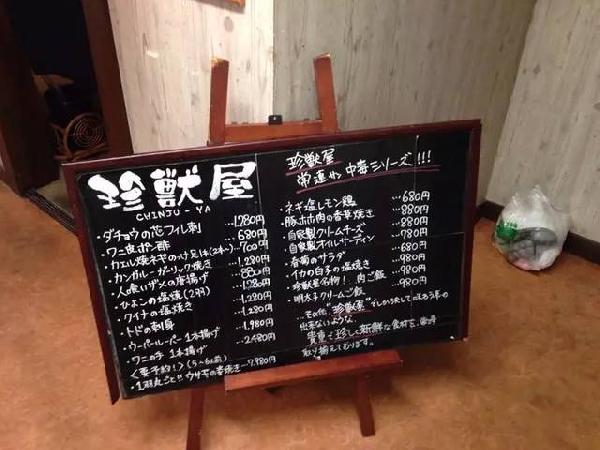 珍獣屋
CHINJU-YA
・ダチョウの花フィレ刺 …1,280円
・ワニ皮ポン酢 …680円
・カエル焼ネギのっけ 足は(2本) …700円
・カンガルーガーリック焼き …1,280円
・人喰いザメの唐揚げ …880円
・ひよこの塩焼(2羽) …1,280円
・ワイナの塩焼き …1,280円
・トドの刺身 …1,280円
・ウーパールーパー 1本揚げ …1,980円
・ワニの手 1本揚げ …2,480円
<要予約!>(5~6人前)
・1羽丸ごと!!ウサギの姿焼き …7,980円
珍獣屋
常連の 中毒シリーズ!!!
・ネギ塩レモン鶏 …680円
・豚ホホ肉の香草焼き …880円
・自家製クリームチーズ …780円
・自家製オイルサーディン …680円
・春菊のサラダ …680円
・イカの白子の塩焼き …980円
・珍獣屋名物! 肉ご飯 …980円
・明太子クリームご飯 …980円
・その他"珍獣屋"でしか決して味わう事の
出来ないような、
貴重で珍しく新鮮な食材を、
取り揃えております。